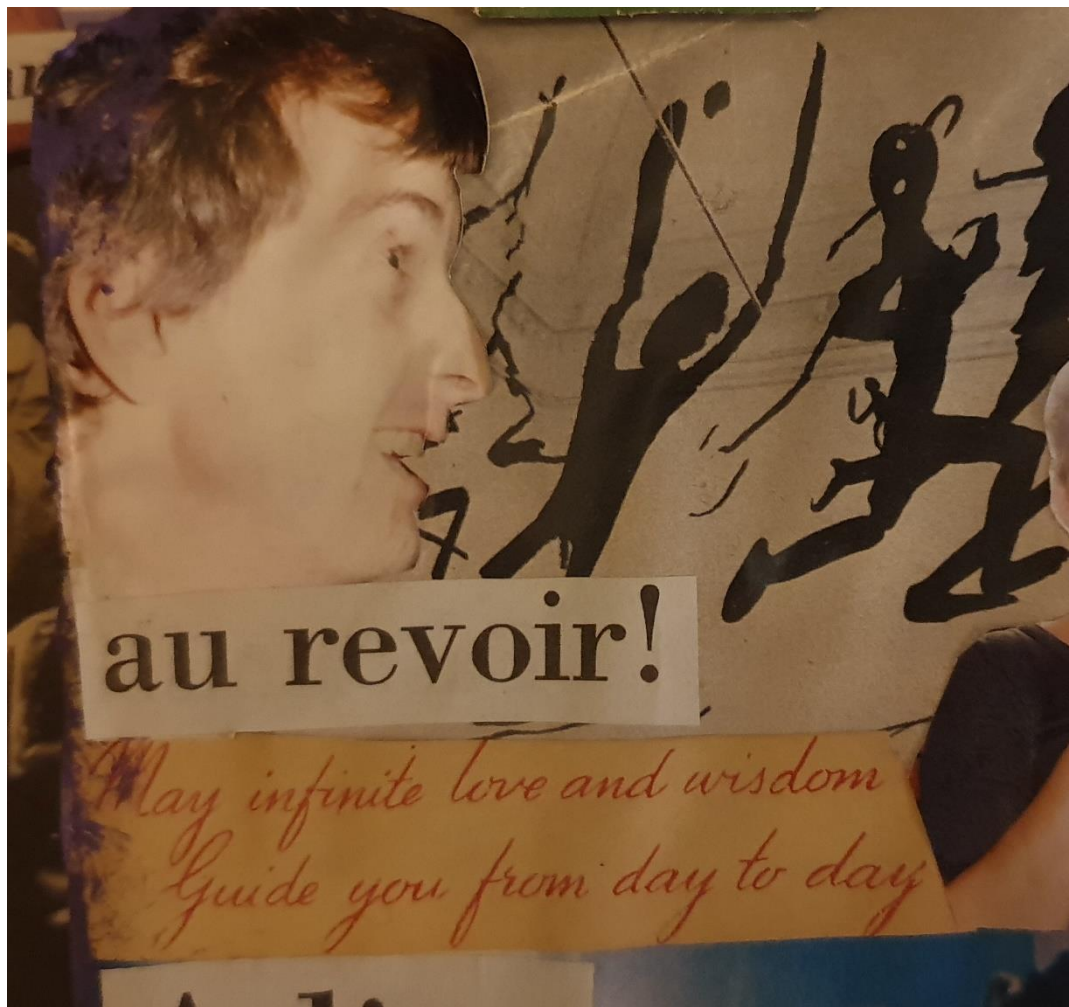 au revoir!
May infinite love and wisdom
Guide you from day to day